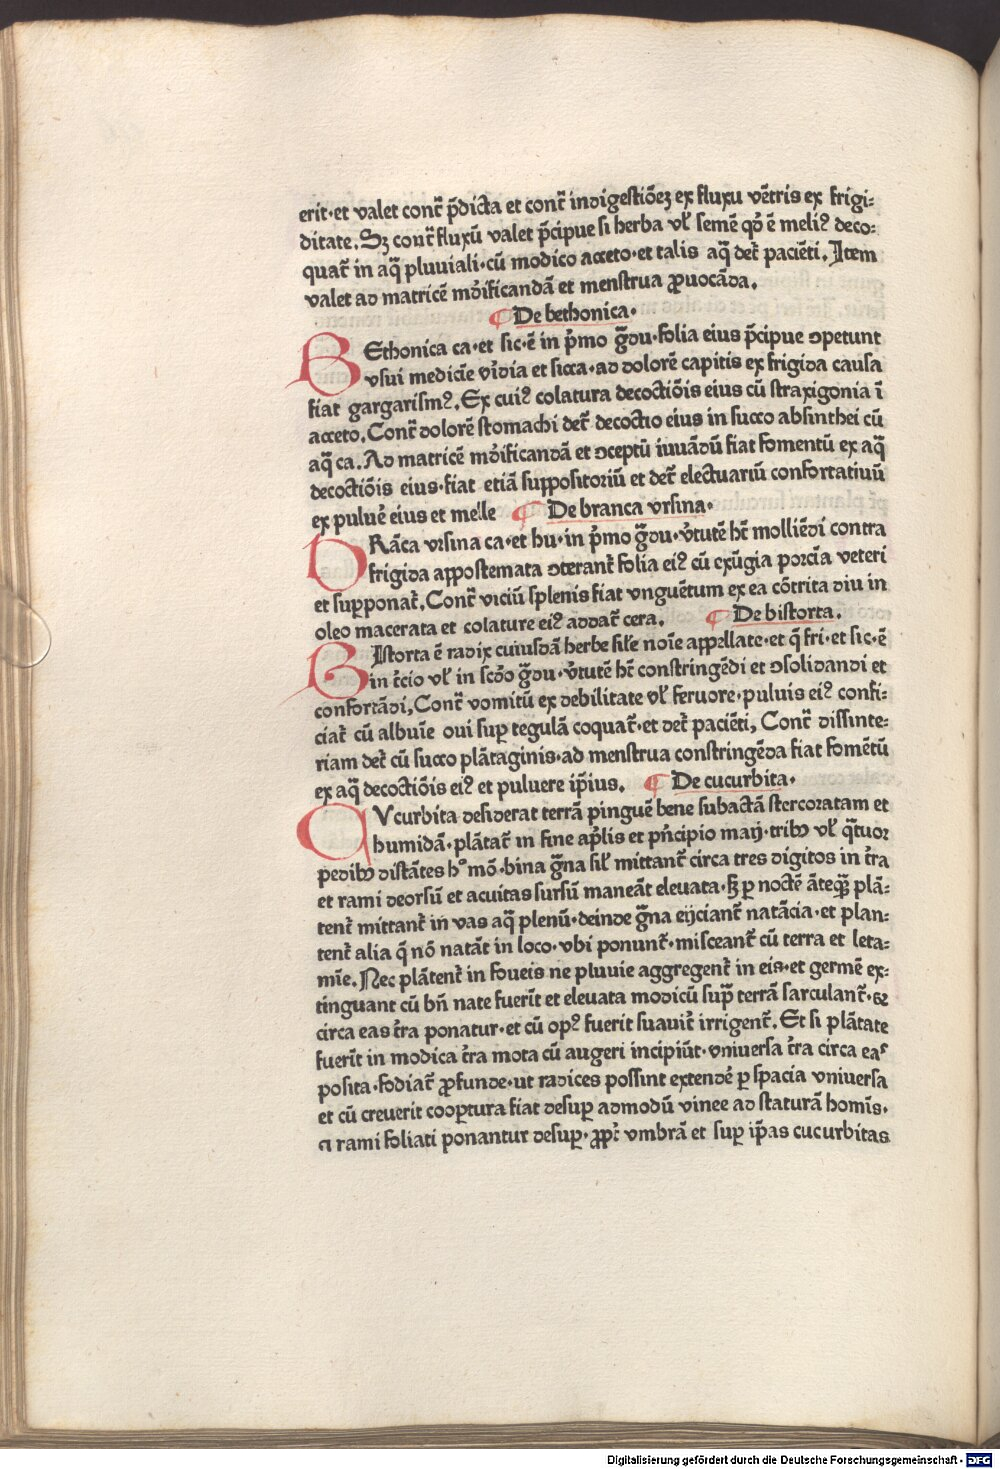 erit·et valet contᷓ p̄dicta et contᷓ indigestiōeꝫ ex fluxu vētris ex frigi⸗
ditate. Sꝫ contᷓ fluxū valet p̄cipue si herba vł semē qđ ē meliꝰ deco⸗
quat̃ in aq̄ pluuiali·cū modico acceto·et talis aq̄ det̃ paciēti. Item
valet ad matricē mōificandā et menstrua ꝓuocāda.
¶ De bethonica·
BEthonica ca·et sic·ē in p̄mo gᷓdu·folia eius p̄cipue ↄpetunt
vsui medicīe viridia et sicca·ad dolorē capitis ex frigida causa
fiat gargarismꝰ. Ex cuiꝰ colatura decoctiōis eius cū straxigonia ī
acceto. Contᷓ dolorē stomachi det̃ decoctio eius in succo absinthei cū
aq̄ ca. Ad matricē mōificandā et ↄceptū iuuādū fiat fomentū ex aq̄
decoctiōis eius·fiat etiā suppositoriū et det̃ electuariū confortatiuū
ex puluē eius et melle ¶ De branca vrsina·
BRāca vrsina ca·et hu·in p̄mo gᷓdu·v̄tutē hꝫ molliēdi contra
frigida appostemata ↄterant̃ folia eiꝰ cū exūgia porcīa veteri
et supponat̃. Contᷓ viciū splenis fiat vnguētum ex ea cōtrita diu in
oleo macerata et colature eiꝰ addat̃ cera. ¶ De bistorta.
BIstorta ē radix cuiusdā herbe sile noīe appellate·et q̄ fri·et sic·ē
in t̄cio vł in scōo gᷓdu·v̄tutē hꝫ constringēdi et ↄsolidandi et
confortādi, Contᷓ vomitū ex debilitate vł feruore·puluis eiꝰ confi⸗
ciat̃ cū albuīe oui sup tegulā coquat̃·et det̃ paciēti, Contᷓ dissinte⸗
riam det̃ cū succo plātaginis·ad menstrua constringēda fiat fomētū
ex aq̄ decoctiōis eiꝰ et puluere ip̄ius. ¶ De cucurbita·
CVcurbita desiderat terrā pinguē bene subactā stercoratam et
humidā·plātat̃ in fine ap̄lis et p̄ncipio maij·tribꝰ vł q̄tuor
pedibꝰ distātes hᵒ mō·bina gᷓna sił mittant̃ circa tres digitos in t̄ra
et rami deorsū et acuitas sursū maneāt eleuata·sꝫ ꝑ noctē āteqᷓ plā⸗
tent̃ mittant̃ in vas aq̄ plenū·deinde gᷓna eijciant̃ natācia·et plan⸗
tent̃ alia q̄ nō natāt in loco·vbi ponunt̃·misceant̃ cū terra et leta⸗
mīe. Nec plātent̃ in foueis ne pluuie aggregent̃ in eis·et germē ex⸗
tinguant cū bn̄ nate fuerīt et eleuata modicū supᷓ terrā sarculant̃·⁊
circa eas t̄ra ponatur·et cū opꝰ fuerit suauit̃ irrigent̃. Et si plātate
fuerīt in modica t̄ra mota cū augeri incipiūt·vniuersa t̄ra circa eas
posita·fodiat̃ ꝓfunde·ut radices possint extendē ꝑ spacia vniuersa
et cū creuerit cooptura fiat desup admodū vinee ad staturā homīs·
a rami foliati ponantur desup·ꝓpt̃ vmbrā et sup ip̄as cucurbitas
Digitalisierung gefördert durch die Deutsche Forschungsgemeinschaft · DFG